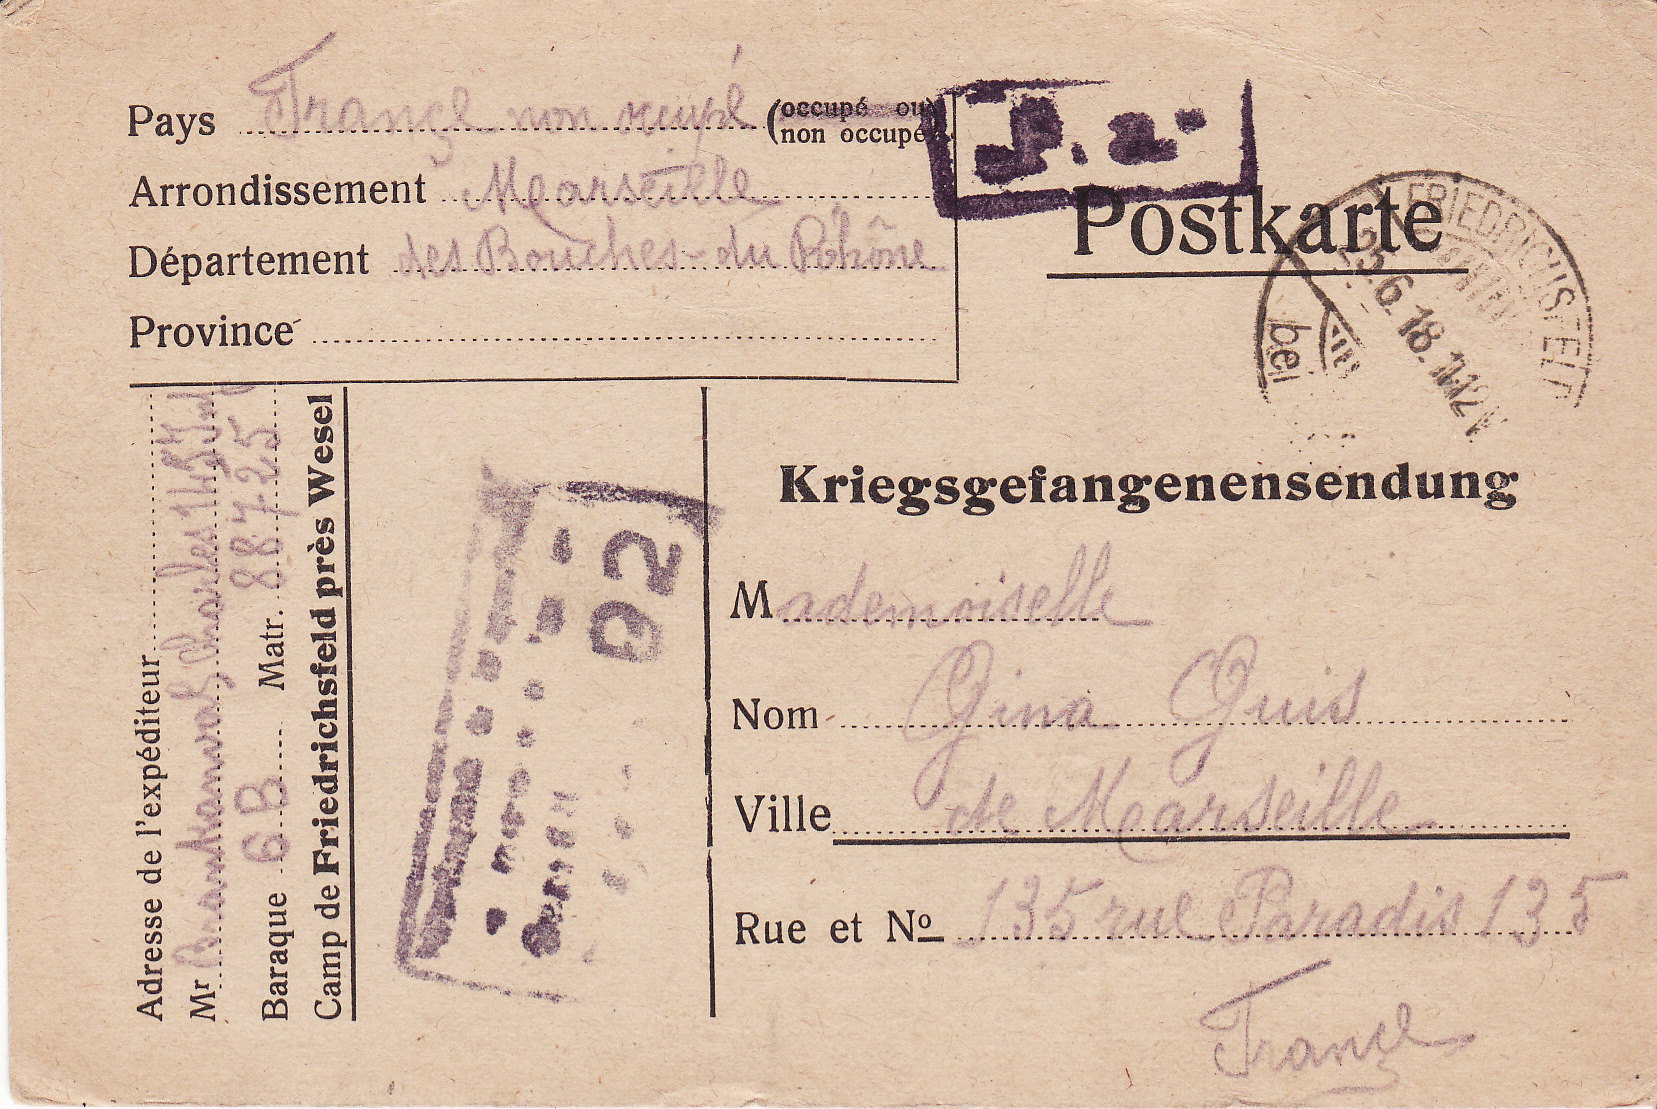 Pays France non occupé (occupé ou non occupé)
F.a.
Arrondissement Marseille
Postkarte
Département des Bouches-du Rhône
Province
FRIEDRICHSFELD
bei
23.6.18.11-12V
Kriegsgefangenensendung
Mademoiselle
Nom Gina Guis
Ville de Marseille
Rue et No 135 rue Paradis 135
France
Adresse de l'expéditeur
Mr Charles
Baraque 6B Matr. 88725
Camp de Friedrichsfeld près Wesel
02